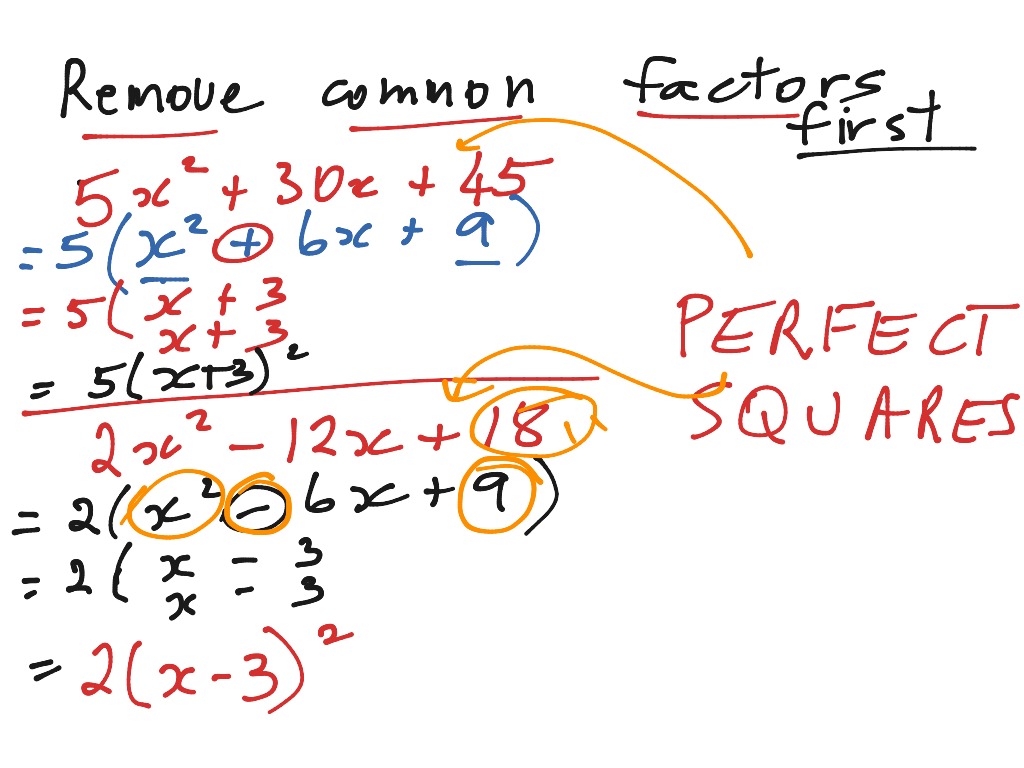 Remove common factors
first
5x² + 30x + 45
= 5(x² + 6x + 9)
= 5( x + 3
x + 3
= 5(x+3)²
PERFECT
SQUARES
2x² - 12x + 18
= 2(x² - 6x + 9)
= 2( x - 3
x - 3
= 2(x-3)²